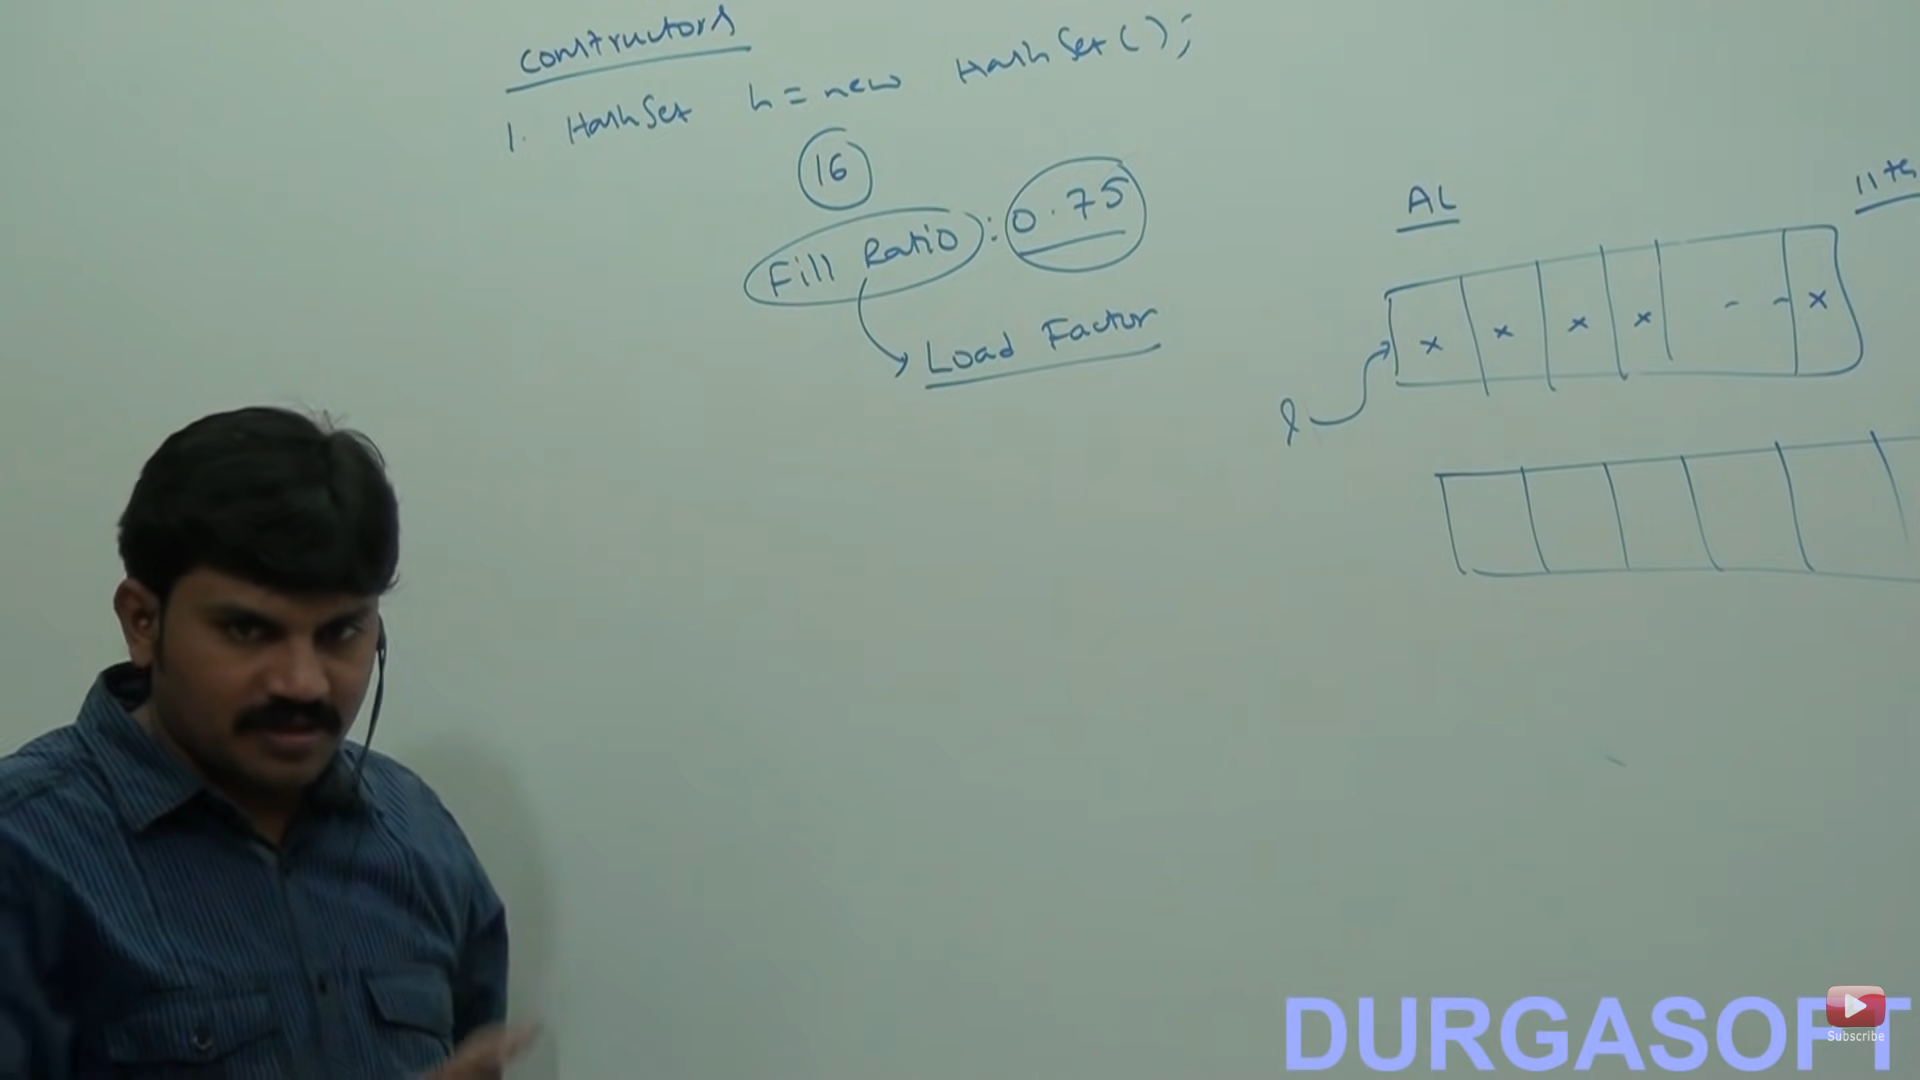 Constructors
1. HashSet h = new HashSet();
16
Fill Ratio : 0.75
Load Factor
AL
11th
l
x x x x - - x
DURGASOFT
Subscribe